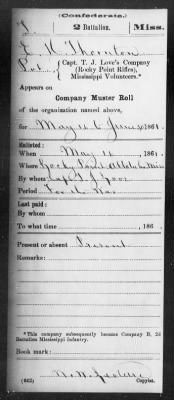 (Confederate.)
2 Battalion. Miss.
E. H. Thornton
Pvt., Capt. T. J. Love's Company
(Rocky Point Rifles),
Mississippi Volunteers.*
Appears on
Company Muster Roll
of the organization named above,
for May 12 to June 30, 1861.
Enlisted:
When May 12, 1861.
Where Rocky Point Miss
By whom Capt. T. J. Love
Period For the War
Last paid:
By whom
To what time , 186 .
Present or absent Present
Remarks:
*This company subsequently became Company B, 2d
Battalion Mississippi Infantry.
Book mark:
(642) Copyist.